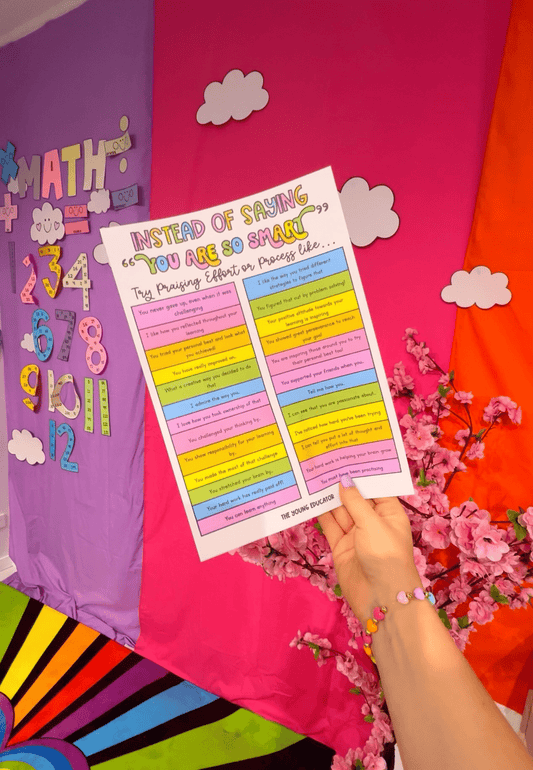 MATH
2 3 4
6 7 8
9 10 11
12
INSTEAD OF SAYING
"YOU ARE SO SMART"
Try Praising Effort or Process like...
You never gave up, even when it was
challenging
I like how you reflected throughout your
learning
You tried your personal best and look what
you achieved!
You have really improved on...
What a creative way you decided to do
that
I admire the way you...
I love how you took ownership of that
You challenged your thinking by...
You show responsibility for your learning
by...
You made the most of that challenge
You stretched your brain by...
Your hard work has really paid off!
You can learn anything
I like the way you tried different
strategies to figure that
You figured that out by problem solving!
Your positive attitude towards your
learning is inspiring
You showed great perseverance to reach
your goal
You are inspiring those around you to try
their personal best too!
You supported your friends when you...
Tell me how you...
I can see that you are passionate about...
I've noticed how hard you've been trying
I can tell you put a lot of thought and
effort into that
Your hard work is helping your brain grow
You must have been practising
THE YOUNG EDUCATOR